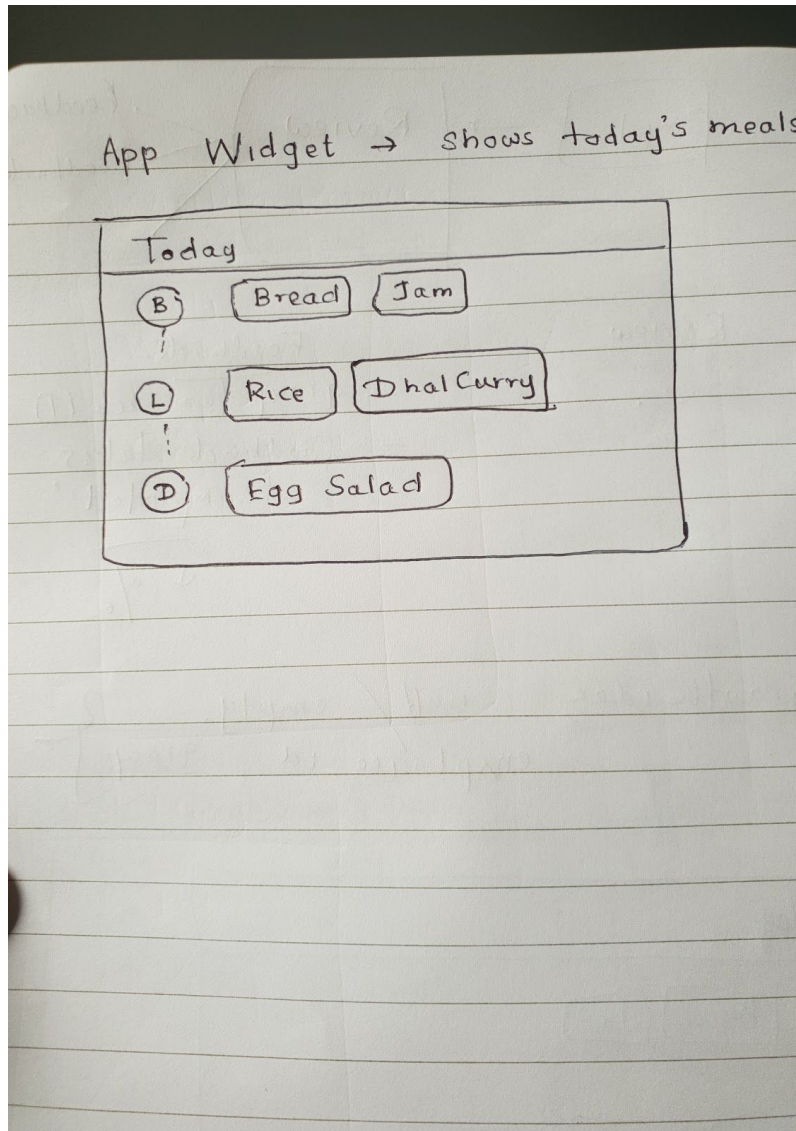 App Widget → shows today's meals
Today
B Bread Jam
L Rice Dhal Curry
D Egg Salad